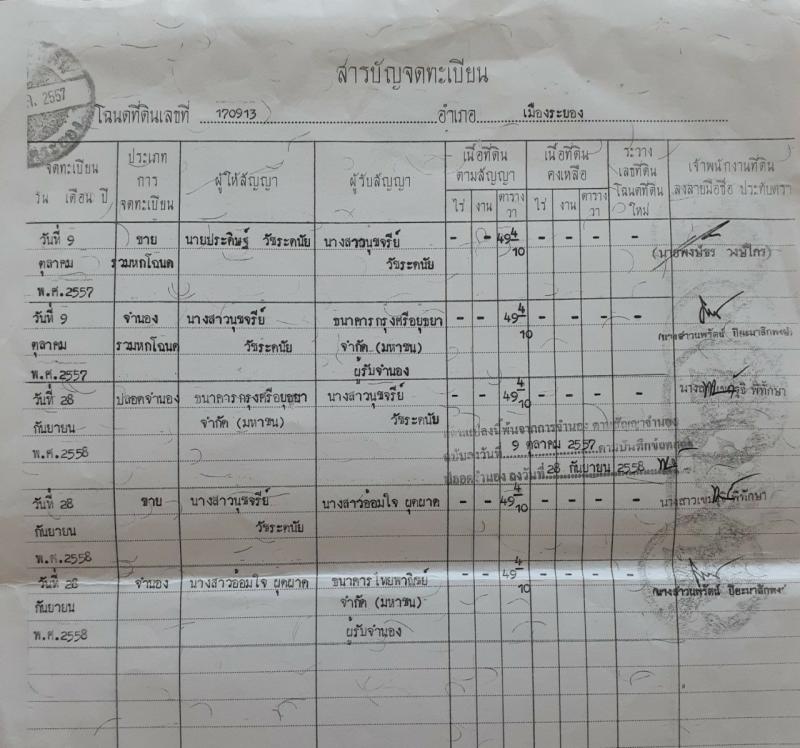 2557
สารบัญจดทะเบียน
โฉนดที่ดินเลขที่ 170913 อำเภอ เมืองระยอง
จดทะเบียน วัน เดือน ปี
ประเภทการจดทะเบียน
ผู้ให้สัญญา
ผู้รับสัญญา
เนื้อที่ดินตามสัญญา
ไร่ งาน ตารางวา
เนื้อที่ดินคงเหลือ
ไร่ งาน ตารางวา
ระวาง เลขที่ดิน โฉนดที่ดินใหม่
เจ้าพนักงานที่ดิน ลงลายมือชื่อ ประทับตรา
วันที่ 9 ขาย นายประดิษฐ์ วัชระคนัย นางสาวนุชจรีย์ - - 49 4/10 - - - -
ตุลาคม รวมหกโฉนด วัชระคนัย
พ.ศ.2557
วันที่ 9 จำนอง นางสาวนุชจรีย์ ธนาคารกรุงศรีอยุธยา - - 49 4/10 - - - -
ตุลาคม รวมหกโฉนด วัชระคนัย จำกัด (มหาชน)
พ.ศ.2557 ผู้รับจำนอง
วันที่ 28 ปลอดจำนอง ธนาคารกรุงศรีอยุธยา นางสาวนุชจรีย์ - - 49 4/10 - - - - พิทักษา
กันยายน จำกัด (มหาชน) วัชระคนัย
พ.ศ.2558
แปลงนี้พ้นจากการจำนอง ตามสัญญาจำนอง
ฉบับลงวันที่ 9 ตุลาคม 2557 ตามบันทึกข้อตกลง
ปลอดจำนอง ลงวันที่ 28 กันยายน 2558
วันที่ 28 ขาย นางสาวนุชจรีย์ นางสาวอ้อมใจ ผุดผาด - - 49 4/10 - - - - พิทักษา
กันยายน วัชระคนัย
พ.ศ.2558
วันที่ 28 จำนอง นางสาวอ้อมใจ ผุดผาด ธนาคารไทยพาณิชย์ - - 49 4/10 - - - -
กันยายน จำกัด (มหาชน)
พ.ศ.2558 ผู้รับจำนอง